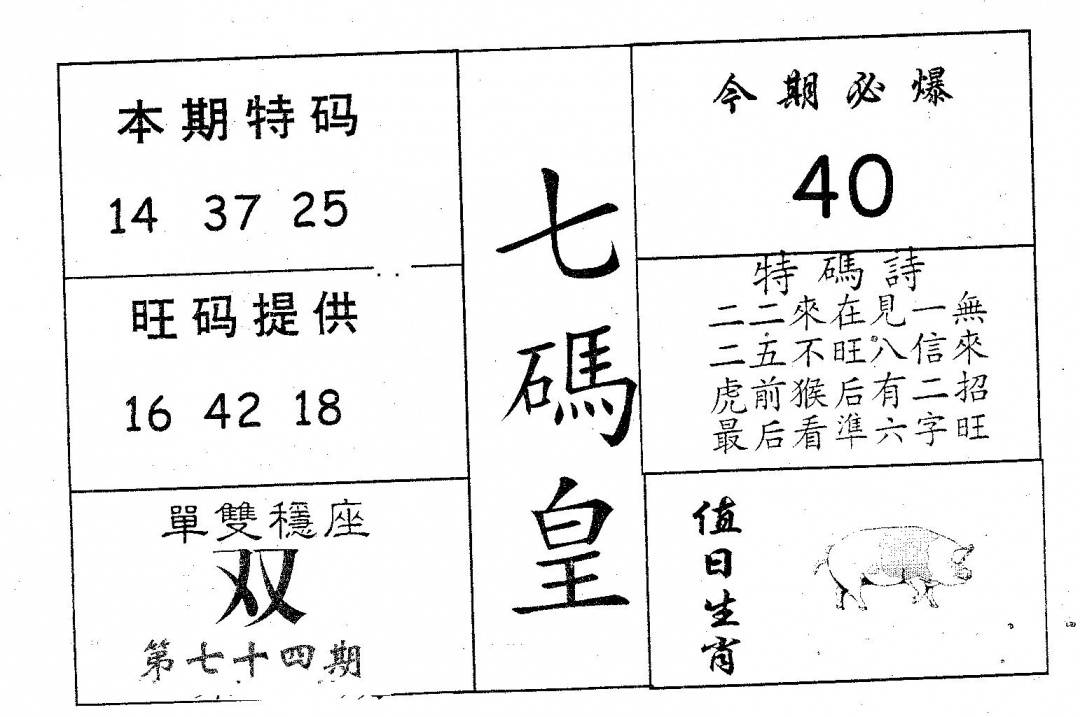 本期特码
14 37 25
旺码提供
16 42 18
單雙穩座
双
第七十四期
七碼皇
今期必爆
40
特碼詩
二二來在見一無
二五不旺八信來
虎前猴后有二招
最后看準六字旺
值日生肖